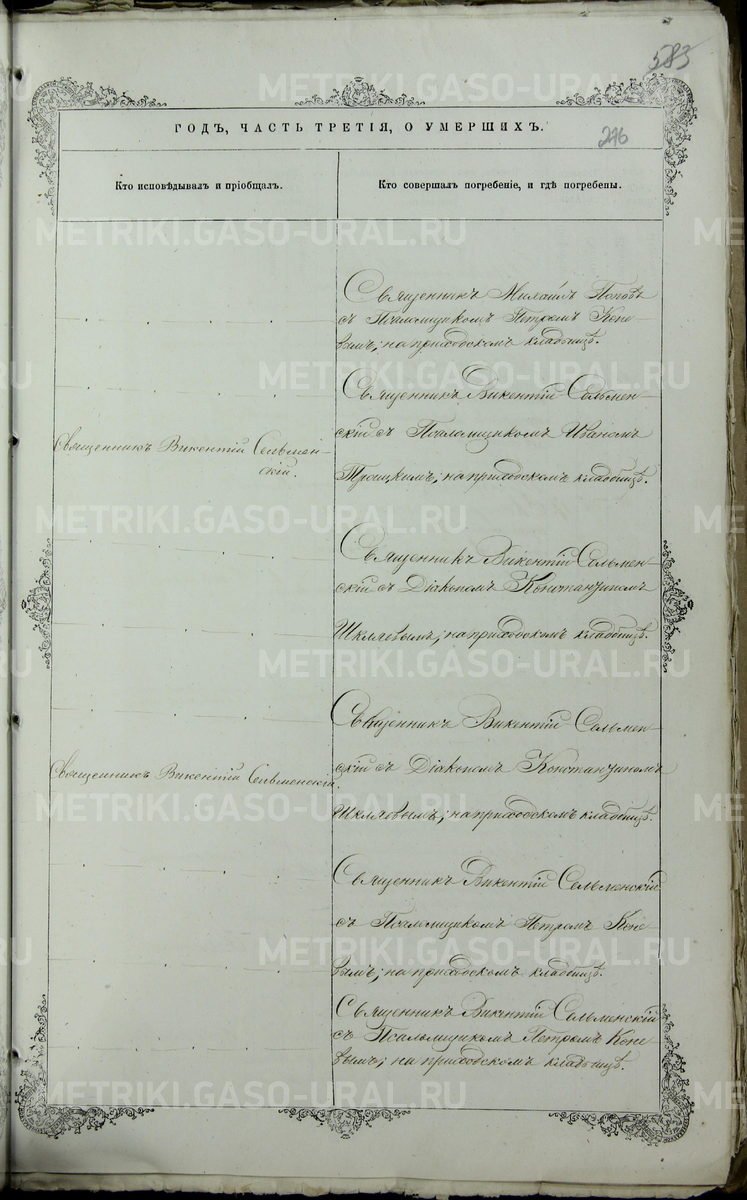 583
ГОДЪ, ЧАСТЬ ТРЕТІЯ, О УМЕРШИХЪ.
216
Кто исповѣдывалъ и пріобщалъ.
Кто совершалъ погребеніе, и гдѣ погребены.
Священникъ Михаилъ Поповъ
съ Псаломщикомъ Петромъ Коне-
вымъ; на приходскомъ кладбищѣ.
Священникъ Викентій Сельмен-
скій съ Псаломщикомъ Иваномъ
Троицкимъ; на приходскомъ кладбищѣ.
Священникъ Викентій Сельмен-
скій.
Священникъ Викентій Сельмен-
скій съ Діакономъ Константиномъ
Шкляевымъ; на приходскомъ кладбищѣ.
Священникъ Викентій Сельмен-
скій съ Діакономъ Константиномъ
Шкляевымъ; на приходскомъ кладбищѣ.
Священникъ Викентій Сельменскій.
Священникъ Викентій Сельменскій
съ Псаломщикомъ Петромъ Коне
вымъ; на приходскомъ кладбищѣ.
Священникъ Викентій Сельменскій
съ Псаломщикомъ Петромъ Коне
вымъ; на приходскомъ кладбищѣ.
METRIKI.GASO-URAL.RU